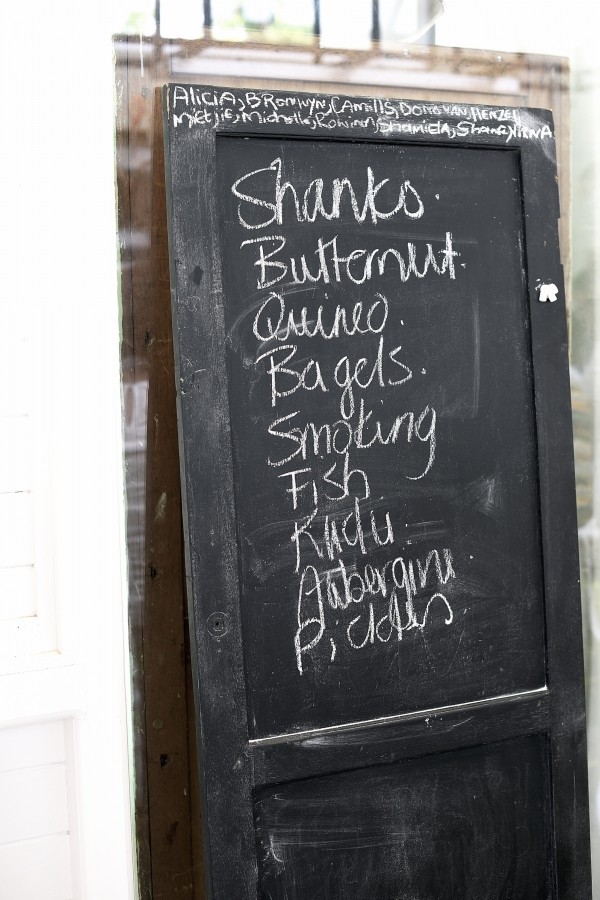 Alicia, BRonwyn, CAmills, DONOVAN, HENZEL
Mietjie, Michelle, Shamiela, Shane,
Shanks.
Butternut.
Quineo.
Bagels.
Smoking
Fish
Kudu.
Auberginu
Pickles